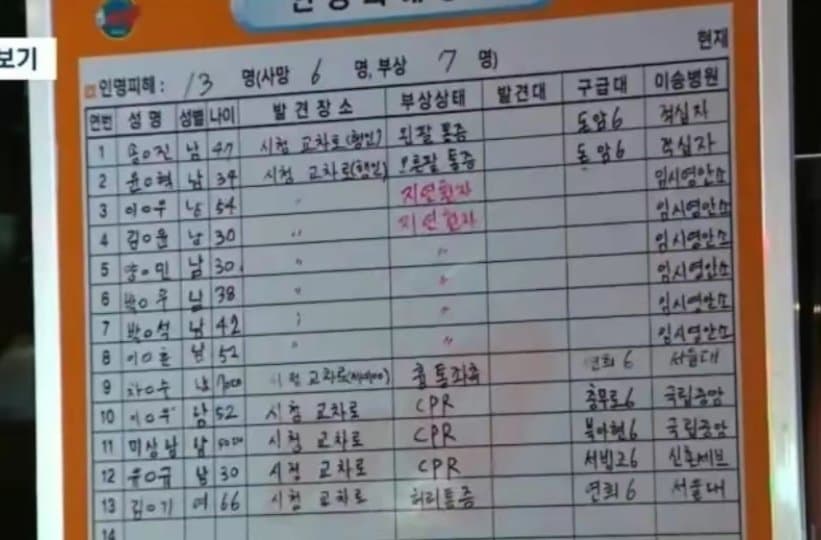 보기
현재
인명피해 : 13 명(사망 6 명, 부상 7 명)
연번 성명 성별 나이 발견장소 부상상태 발견대 구급대 이송병원
1 송○진 남 47 시청 교차로(행인) 왼팔 통증 돈암6 적십자
2 윤○혁 남 34 시청 교차로(행인) 오른팔 통증 돈암6 적십자
3 이○우 남 54 〃 지연환자 임시영안소
4 김○윤 남 30 〃 지연환자 임시영안소
5 양○민 남 30 〃 〃 임시영안소
6 박○우 남 38 〃 〃 임시영안소
7 박○석 남 42 〃 〃 임시영안소
8 이○훈 남 52 〃 〃 임시영안소
9 차○수 남 시청 교차로 흉통좌측 연희6 서울대
10 이○우 남 52 시청 교차로 CPR 충무로6 국립중앙
11 미상남 남 시청 교차로 CPR 북아현6 국립중앙
12 유○규 남 30 시청 교차로 CPR 서빙고6 신촌세브
13 김○기 여 66 시청 교차로 허리통증 연희6 서울대
14